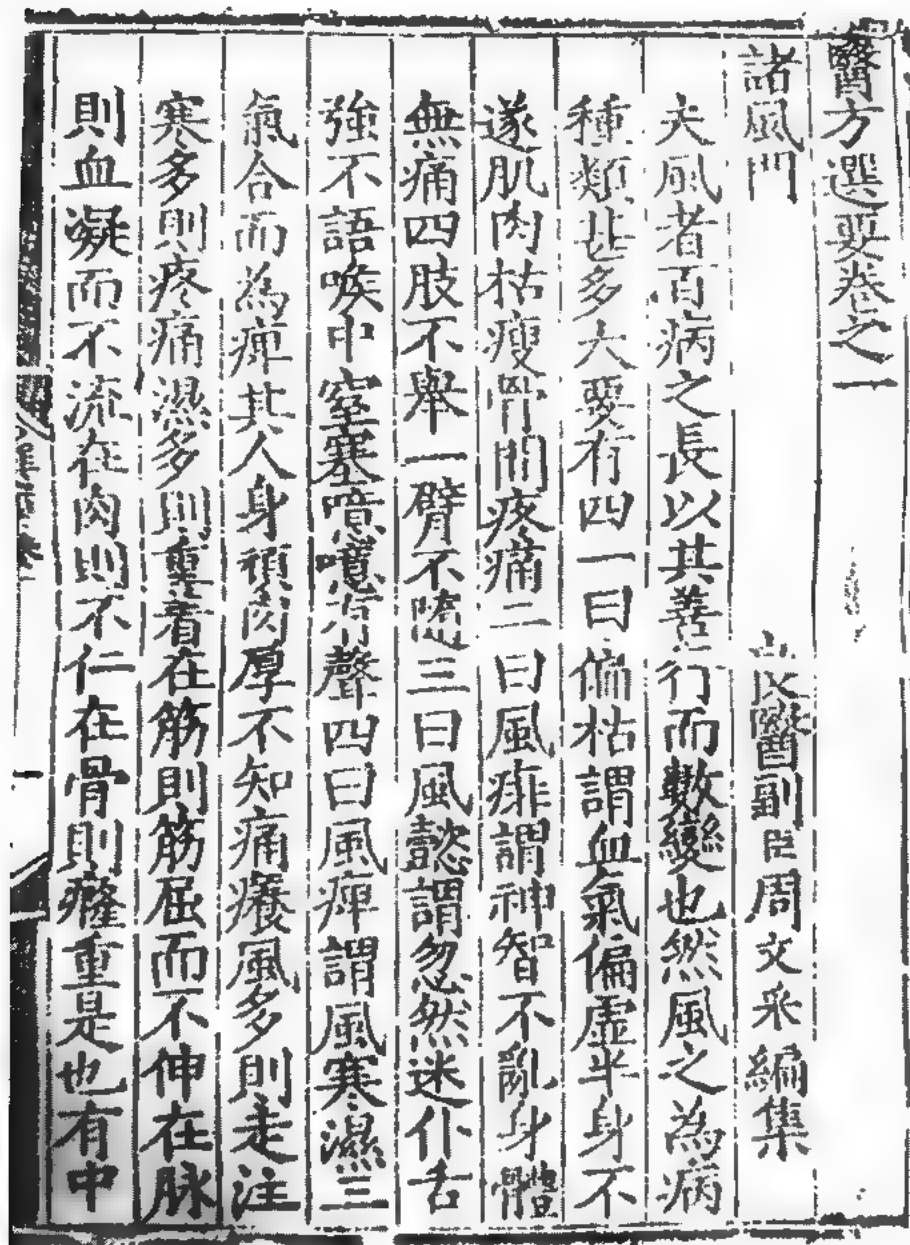 醫方選要卷之一
諸風門
良醫副臣周文采編集
夫風者百病之長以其善行而數變也然風之為病
種類甚多大要有四一曰偏枯謂血氣偏虛半身不
遂肌肉枯瘦骨間疼痛二曰風痱謂神智不亂身體
無痛四肢不舉一臂不隨三曰風懿謂忽然迷仆舌
強不語喉中窒塞噫噫有聲四曰風痺謂風寒濕三
氣合而為痺其人身頑肉厚不知痛癢風多則走注
寒多則疼痛濕多則重着在筋則筋屈而不伸在脉
則血凝而不流在肉則不仁在骨則癃重是也有中